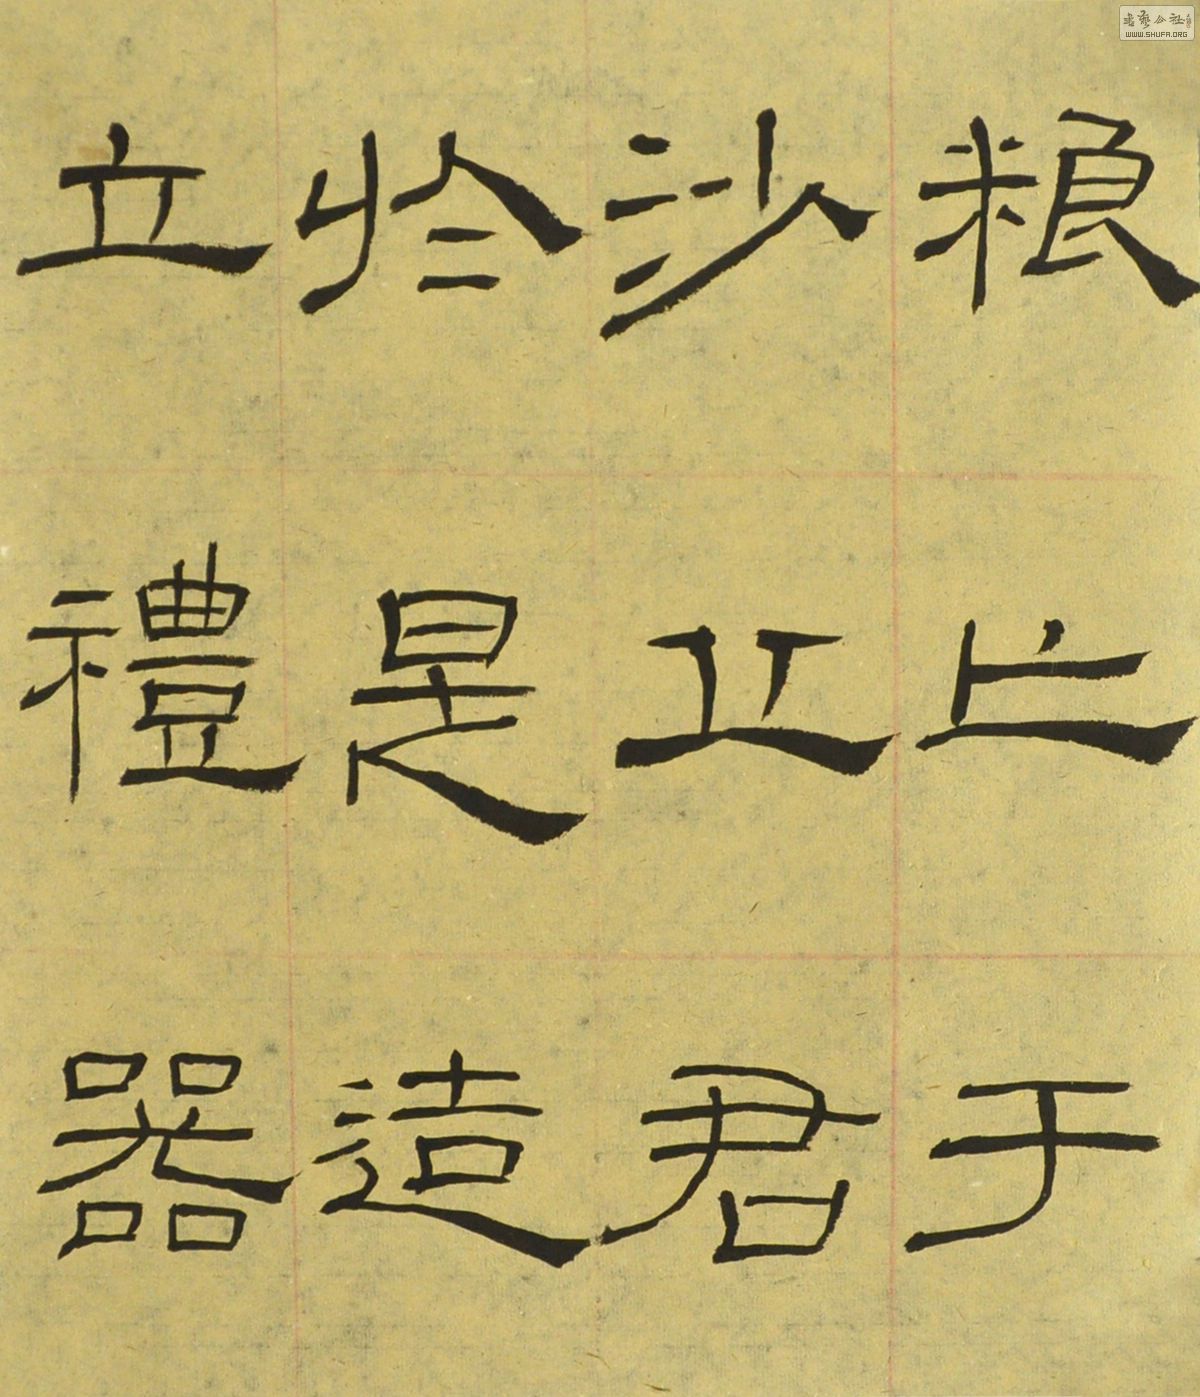 粮亡于
沙丘君
於是造
立禮器
書藝公社
WWW.SHUFA.ORG